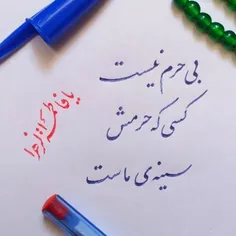 بی حرم نیست
کسی که حرمش
سینه‌ی ماست
یا فاطمة الزهرا